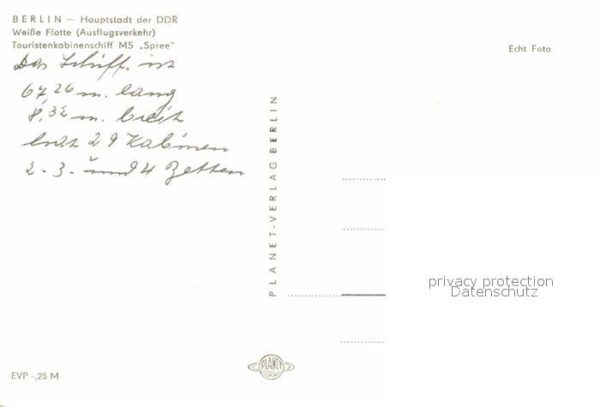 BERLIN — Hauptstadt der DDR
Weiße Flotte (Ausflugsverkehr)
Touristenkabinenschiff MS „Spree"
Echt Foto
Das Schiff. ist
67 26 m. lang
8,32 m. breit
hat 29 Kabinen
2. 3. und 4 Betten
PLANET-VERLAG BERLIN
privacy protection
Datenschutz
PLANET
EVP -,25 M